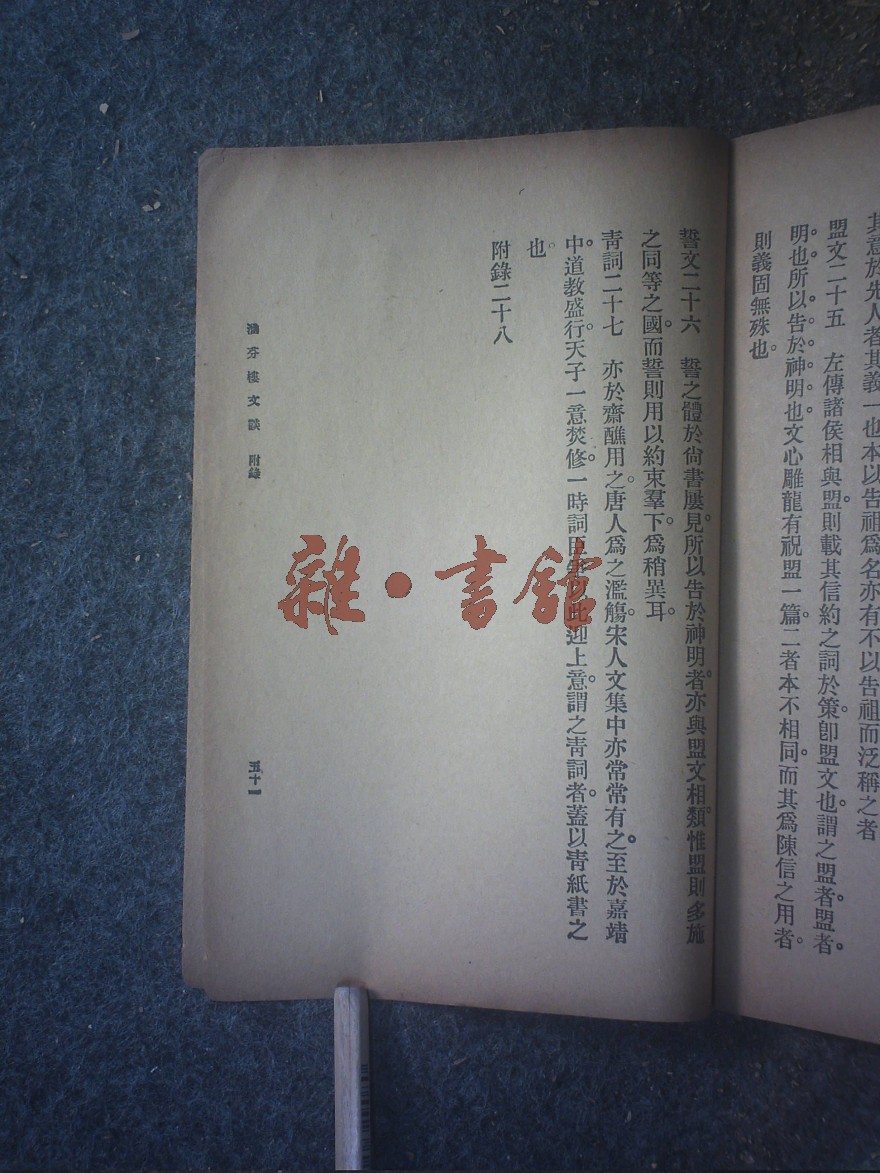 其意於先人者其義一也本以告祖爲名亦有不以告祖而泛稱之者
盟文二十五　左傳諸侯相與盟則載其信約之詞於策卽盟文也。謂之盟者盟者。
明也。所以告於神明也。文心雕龍有祝盟一篇。二者本不相同。而其爲陳信之用者。
則義固無殊也。
誓文二十六　誓之體於尙書屢見。所以告於神明者。亦與盟文相類。惟盟則多施
之同等之國。而誓則用以約束羣下。爲稍異耳。
靑詞二十七　亦於齋醮用之。唐人爲之濫觴。宋人文集中亦常常有之。至於嘉靖
中。道敎盛行。天子一意焚修。一時詞臣以此迎上意。謂之靑詞者。蓋以靑紙書之
也。
附錄二十八
涵芬樓文談　附錄
五十一
雜·書館